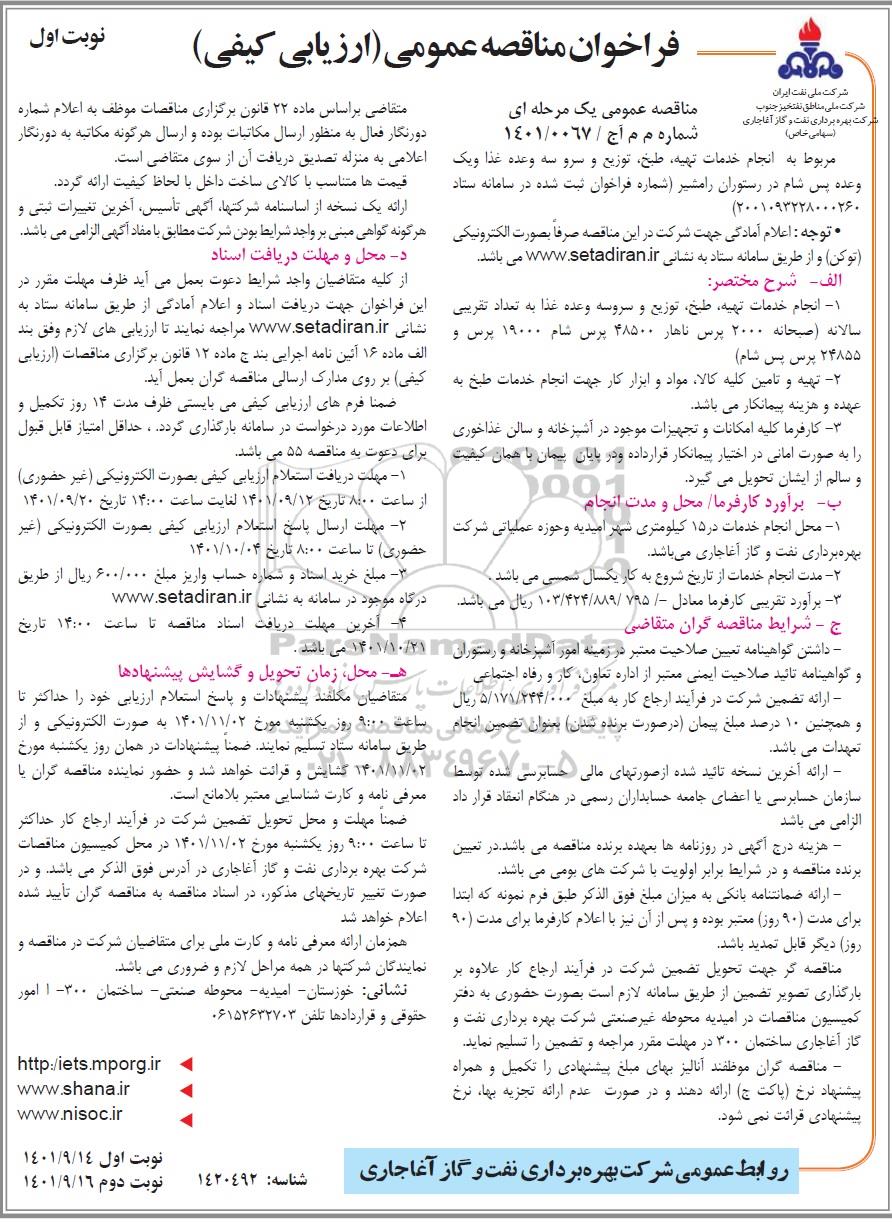 نوبت اول
فراخوان مناقصه عمومی (ارزیابی کیفی)
شرکت ملی نفت ایران
شرکت ملی مناطق نفتخیز جنوب
شرکت بهره برداری نفت و گاز آغاجاری
(سهامی خاص)
مناقصه عمومی یک مرحله ای
شماره م م آج / ۱۴۰۱/۰۰۶۷
مربوط به انجام خدمات تهیه، طبخ، توزیع و سرو سه وعده غذا ویک
وعده پس شام در رستوران رامشیر (شماره فراخوان ثبت شده در سامانه ستاد
۲۰۰۱۰۹۳۲۲۸۰۰۰۲۶۰)
• توجه : اعلام آمادگی جهت شرکت در این مناقصه صرفاً بصورت الکترونیکی
(توکن) و از طریق سامانه ستاد به نشانی www.setadiran.ir می باشد.
الف- شرح مختصر:
۱- انجام خدمات تهیه، طبخ، توزیع و سروسه وعده غذا به تعداد تقریبی
سالانه (صبحانه ۲۰۰۰ پرس ناهار ۴۸۵۰۰ پرس شام ۱۹۰۰۰ پرس و
۲۴۸۵۵ پرس پس شام)
۲- تهیه و تامین کلیه کالا، مواد و ابزار کار جهت انجام خدمات طبخ به
عهده و هزینه پیمانکار می باشد.
۳- کارفرما کلیه امکانات و تجهیزات موجود در آشپزخانه و سالن غذاخوری
را به صورت امانی در اختیار پیمانکار قرارداده ودر پایان پیمان با همان کیفیت
و سالم از ایشان تحویل می گیرد.
ب- برآورد کارفرما/ محل و مدت انجام
۱- محل انجام خدمات در۱۵ کیلومتری شهر امیدیه وحوزه عملیاتی شرکت
بهره‌برداری نفت و گاز آغاجاری می‌باشد.
۲- مدت انجام خدمات از تاریخ شروع به کار یکسال شمسی می باشد .
۳- برآورد تقریبی کارفرما معادل -/ ۷۹۵ /۱۰۳/۴۲۴/۸۸۹ ریال می باشد.
ج - شرایط مناقصه گران متقاضی
- داشتن گواهینامه تعیین صلاحیت معتبر در زمینه امور آشپزخانه و رستوران
و گواهینامه تائید صلاحیت ایمنی معتبر از اداره تعاون، کار و رفاه اجتماعی
- ارائه تضمین شرکت در فرآیند ارجاع کار به مبلغ ۵/۱۷۱/۲۴۴/۰۰۰ ریال
و همچنین ۱۰ درصد مبلغ پیمان (درصورت برنده شدن) بعنوان تضمین انجام
تعهدات می باشد.
- ارائه آخرین نسخه تائید شده ازصورتهای مالی حسابرسی شده توسط
سازمان حسابرسی یا اعضای جامعه حسابداران رسمی در هنگام انعقاد قرار داد
الزامی می باشد
- هزینه درج آگهی در روزنامه ها بعهده برنده مناقصه می باشد.در تعیین
برنده مناقصه و در شرایط برابر اولویت با شرکت های بومی می باشد.
- ارائه ضمانتنامه بانکی به میزان مبلغ فوق الذکر طبق فرم نمونه که ابتدا
برای مدت (۹۰ روز) معتبر بوده و پس از آن نیز با اعلام کارفرما برای مدت (۹۰
روز) دیگر قابل تمدید باشد.
مناقصه گر جهت تحویل تضمین شرکت در فرآیند ارجاع کار علاوه بر
بارگذاری تصویر تضمین از طریق سامانه لازم است بصورت حضوری به دفتر
کمیسیون مناقصات در امیدیه محوطه غیرصنعتی شرکت بهره برداری نفت و
گاز آغاجاری ساختمان ۳۰۰ در مهلت مقرر مراجعه و تضمین را تسلیم نماید.
- مناقصه گران موظفند آنالیز بهای مبلغ پیشنهادی را تکمیل و همراه
پیشنهاد نرخ (پاکت ج) ارائه دهند و در صورت عدم ارائه تجزیه بها، نرخ
پیشنهادی قرائت نمی شود.
متقاضی براساس ماده ۲۲ قانون برگزاری مناقصات موظف به اعلام شماره
دورنگار فعال به منظور ارسال مکاتبات بوده و ارسال هرگونه مکاتبه به دورنگار
اعلامی به منزله تصدیق دریافت آن از سوی متقاضی است.
قیمت ها متناسب با کالای ساخت داخل با لحاظ کیفیت ارائه گردد.
ارائه یک نسخه از اساسنامه شرکتها، آگهی تأسیس، آخرین تغییرات ثبتی و
هرگونه گواهی مبنی بر واجد شرایط بودن شرکت مطابق با مفاد آگهی الزامی می باشد.
د- محل و مهلت دریافت اسناد
از کلیه متقاضیان واجد شرایط دعوت بعمل می آید ظرف مهلت مقرر در
این فراخوان جهت دریافت اسناد و اعلام آمادگی از طریق سامانه ستاد به
نشانی www.setadiran.ir مراجعه نمایند تا ارزیابی های لازم وفق بند
الف ماده ۱۶ آئین نامه اجرایی بند ج ماده ۱۲ قانون برگزاری مناقصات (ارزیابی
کیفی) بر روی مدارک ارسالی مناقصه گران بعمل آید.
ضمنا فرم های ارزیابی کیفی می بایستی ظرف مدت ۱۴ روز تکمیل و
اطلاعات مورد درخواست در سامانه بارگذاری گردد. ، حداقل امتیاز قابل قبول
برای دعوت به مناقصه ۵۵ می باشد.
۱- مهلت دریافت استعلام ارزیابی کیفی بصورت الکترونیکی (غیر حضوری)
از ساعت ۸:۰۰ تاریخ ۱۴۰۱/۰۹/۱۲ لغایت ساعت ۱۴:۰۰ تاریخ ۱۴۰۱/۰۹/۲۰
۲- مهلت ارسال پاسخ استعلام ارزیابی کیفی بصورت الکترونیکی (غیر
حضوری) تا ساعت ۸:۰۰ تاریخ ۱۴۰۱/۱۰/۰۴
۳- مبلغ خرید اسناد و شماره حساب واریز مبلغ ۶۰۰/۰۰۰ ریال از طریق
درگاه موجود در سامانه به نشانی www.setadiran.ir
۴- آخرین مهلت دریافت اسناد مناقصه تا ساعت ۱۴:۰۰ تاریخ
۱۴۰۱/۱۰/۲۱ می باشد .
هـ- محل، زمان تحویل و گشایش پیشنهادها
متقاضیان مکلفند پیشنهادات و پاسخ استعلام ارزیابی خود را حداکثر تا
ساعت ۹:۰۰ روز یکشنبه مورخ ۱۴۰۱/۱۱/۰۲ به صورت الکترونیکی و از
طریق سامانه ستاد تسلیم نمایند. ضمناً پیشنهادات در همان روز یکشنبه مورخ
۱۴۰۱/۱۱/۰۲ گشایش و قرائت خواهد شد و حضور نماینده مناقصه گران با
معرفی نامه و کارت شناسایی معتبر بلامانع است.
ضمناً مهلت و محل تحویل تضمین شرکت در فرآیند ارجاع کار حداکثر
تا ساعت ۹:۰۰ روز یکشنبه مورخ ۱۴۰۱/۱۱/۰۲ در محل کمیسیون مناقصات
شرکت بهره برداری نفت و گاز آغاجاری در آدرس فوق الذکر می باشد. و در
صورت تغییر تاریخهای مذکور، در اسناد مناقصه به مناقصه گران تأیید شده
اعلام خواهد شد
همزمان ارائه معرفی نامه و کارت ملی برای متقاضیان شرکت در مناقصه و
نمایندگان شرکتها در همه مراحل لازم و ضروری می باشد.
نشانی: خوزستان- امیدیه- محوطه صنعتی- ساختمان ۳۰۰- ا امور
حقوقی و قراردادها تلفن ۰۶۱۵۲۶۳۲۷۰۳
http:/iets.mporg.ir
www.shana.ir
www.nisoc.ir
روابط عمومی شرکت بهره برداری نفت و گاز آغاجاری
شناسه: ۱۴۲۰۴۹۲
نوبت اول ۱۴۰۱/۹/۱۴
نوبت دوم ۱۴۰۱/۹/۱۶
ParsNamadData
۰۲۱-۸۸۳۴۹۶۷۰-۵